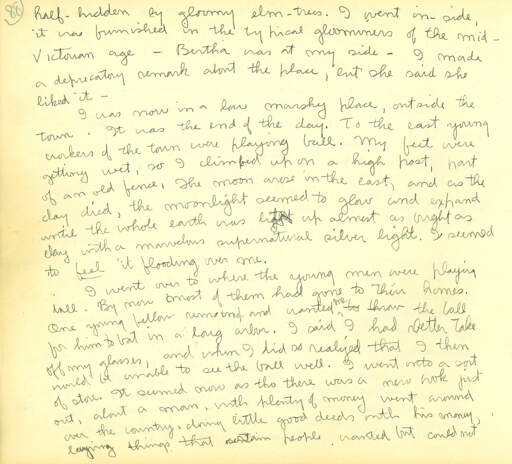 88
half-hidden by gloomy elm-trees. I went in-side,
it was furnished in the typical gloominess of the mid-
Victorian age - Bertha was at my side - I made
a deprecatory remark about the place, but she said she
liked it -
I was now in a low marshy place, outside the
town. It was the end of the day. To the east young
workers of the town were playing ball. My feet were
getting wet, so I climbed up on a high post, part
of an old fence. The moon arose in the east, and as the
day died, the moonlight seemed to glow and expand
until the whole earth was lit up almost as bright as
day with a marvelous supernatural silver light. I seemed
to feel it flooding over me.
I went over to where the young men were playing
ball. By now most of them had gone to their homes.
One young fellow remained and wanted me to throw the ball
for him to bat in a long arbor. I said I had better take
off my glasses, and when I did so realized that I then
would be unable to see the ball well. I went into a sort
of store. It seemed now as tho there was a new book just
out, about a man, with plenty of money went around
over the country, doing little good deeds with his money,
buying things that certain people wanted but could not